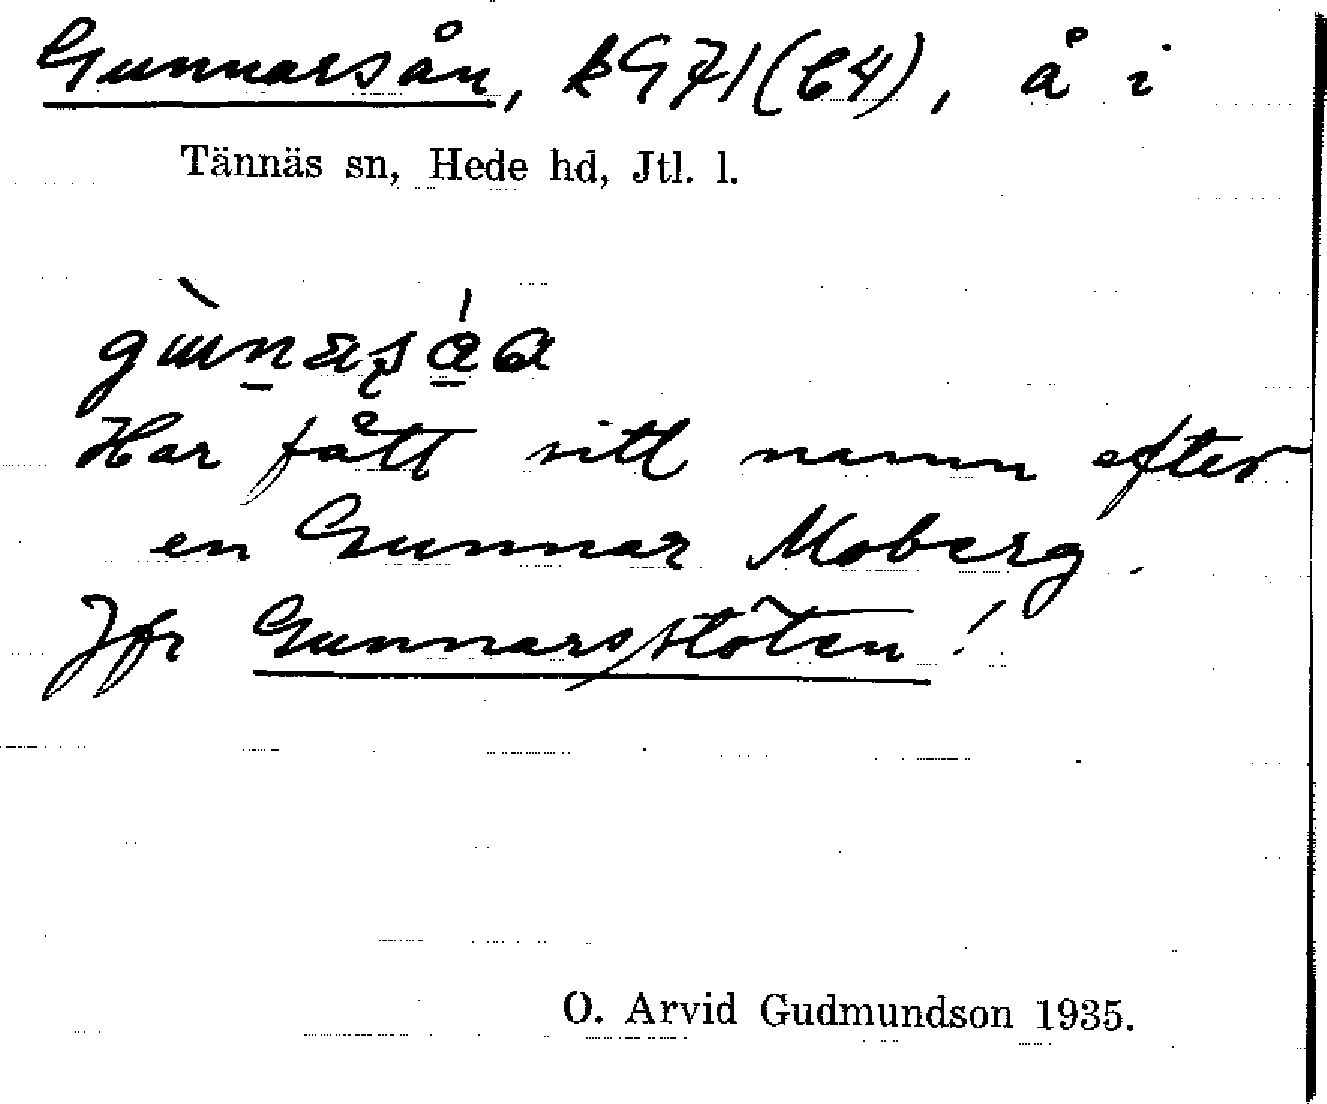 Gunnarsån, kG71(C4), å i
Tännäs sn, Hede hd, Jtl. l.
Har fått sitt namn efter
en Gunnar Moberg.
Jfr Gunnarsstöten!
O. Arvid Gudmundson 1935.